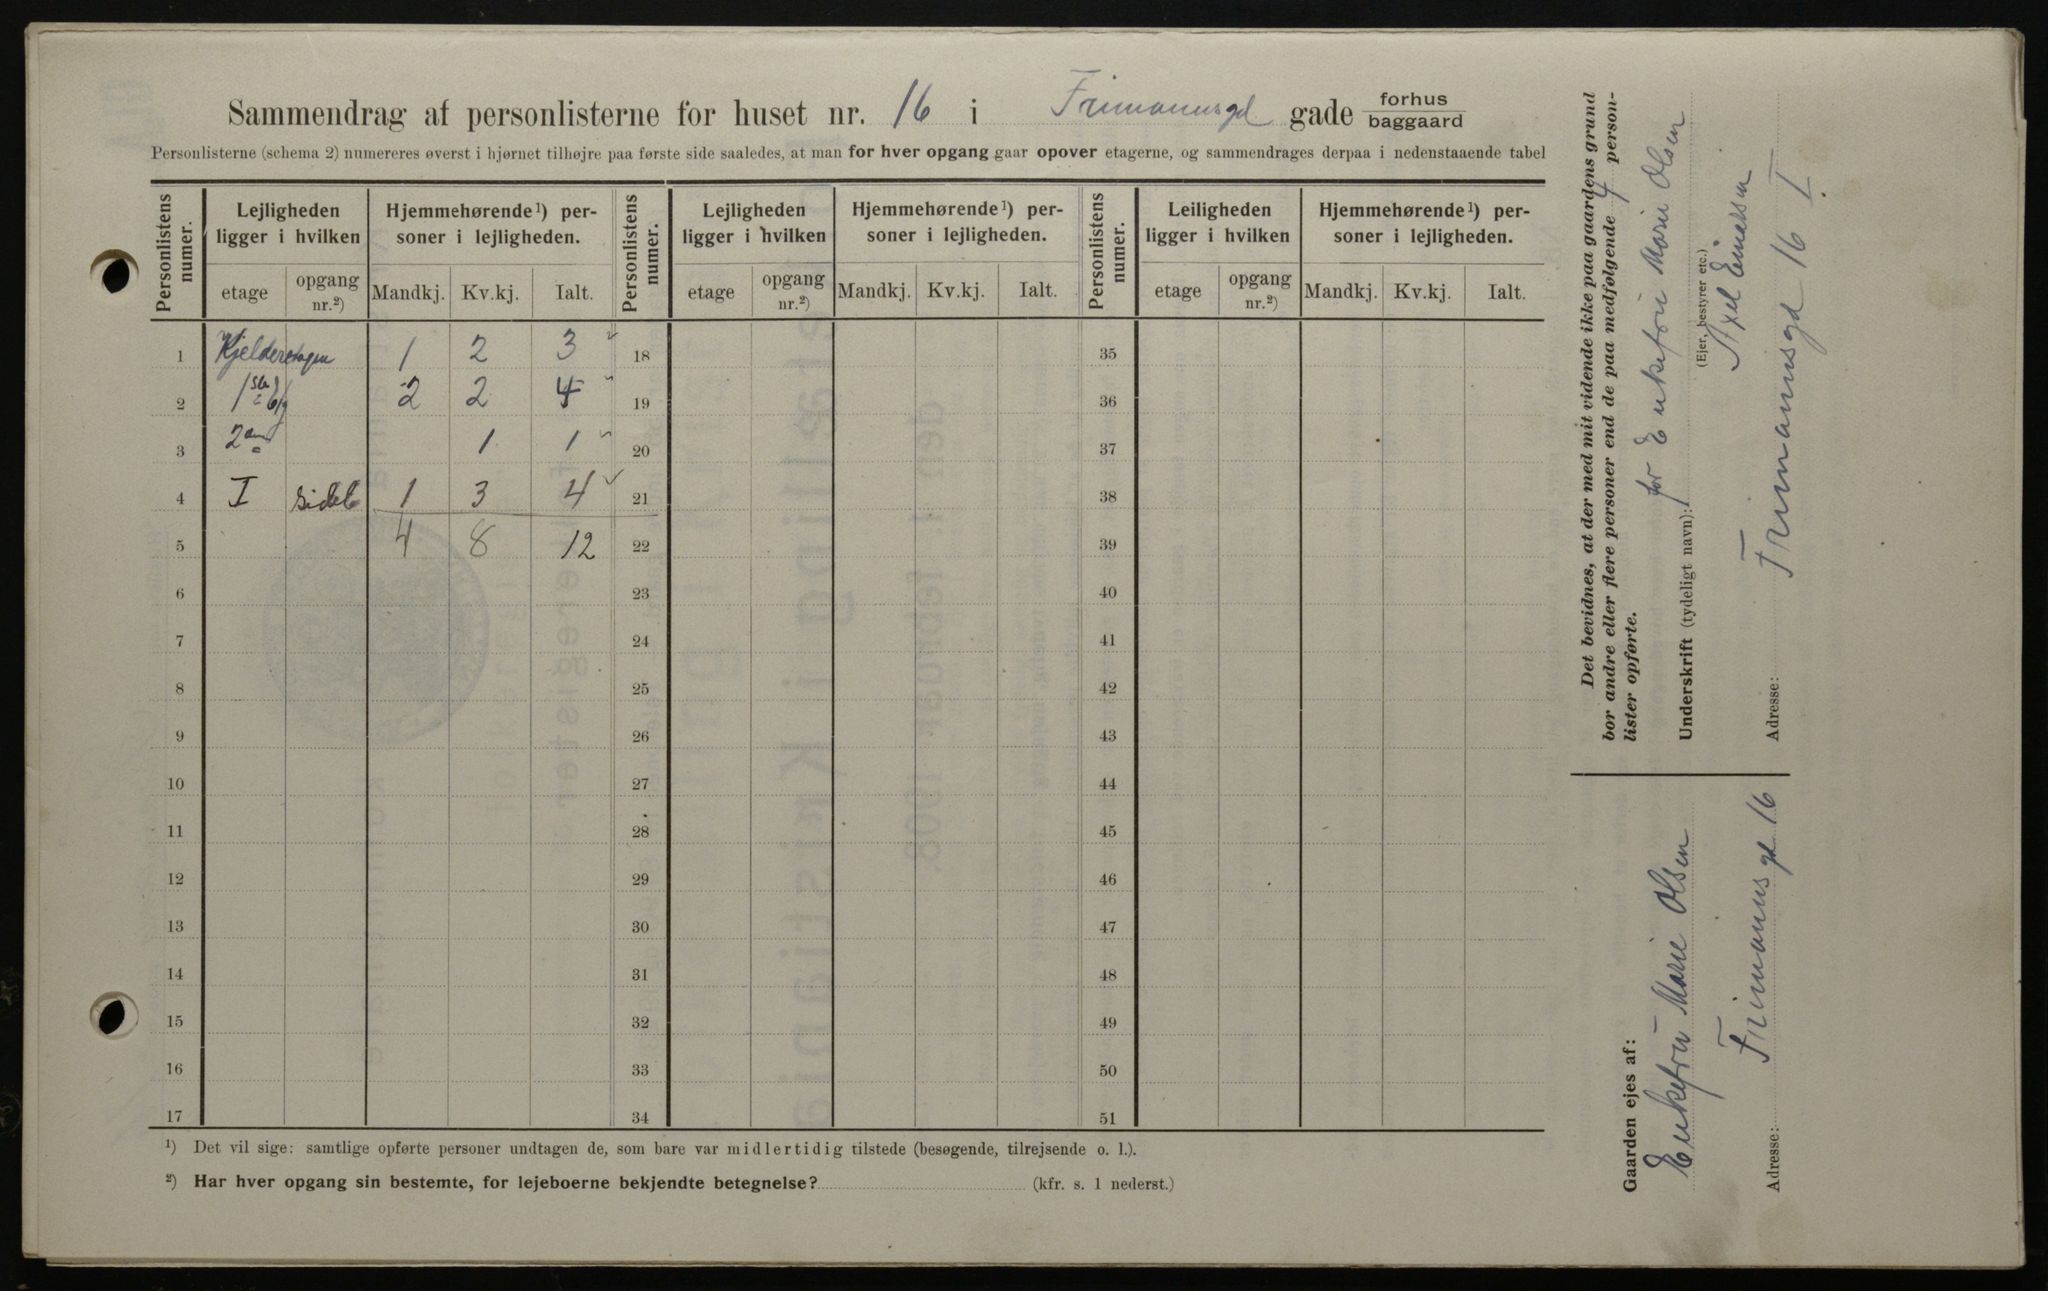 Sammendrag af personlisterne for huset nr. 16 i Frimannsgd gade forhus baggaard
Personlisterne (schema 2) numereres øverst i hjørnet tilhøjre paa første side saaledes, at man for hver opgang gaar opover etagerne, og sammendrages derpaa i nedenstaaende tabel
Personlistens numer. Lejligheden ligger i hvilken Hjemmehørende ¹) personer i lejligheden. Personlistens numer. Lejligheden ligger i hvilken Hjemmehørende ¹) personer i lejligheden. Personlistens numer. Leiligheden ligger i hvilken Hjemmehørende ¹) personer i lejligheden.
etage opgang nr.²) Mandkj. Kv.kj. Ialt. etage opgang nr.²) Mandkj. Kv.kj. Ialt. etage opgang nr.²) Mandkj. Kv.kj. Ialt.
1 Kjelderetagen 1 2 3 18 35
2 1ste 2 2 4 19 36
3 2den 1 1 20 37
4 I sideb 1 3 4 21 38
5 4 8 12 22 39
6 23 40
7 24 41
8 25 42
9 26 43
10 27 44
11 28 45
12 29 46
13 30 47
14 31 48
15 32 49
16 33 50
17 34 51
¹) Det vil sige: samtlige opførte personer undtagen de, som bare var midlertidig tilstede (besøgende, tilrejsende o. l.).
²) Har hver opgang sin bestemte, for lejeboerne bekjendte betegnelse? (kfr. s. 1 nederst.)
Det bevidnes, at der med mit vidende ikke paa gaardens grund
bor andre eller flere personer end de paa medfølgende 4 person-
lister opførte.
for Enkefru Marie Olsen
Underskrift (tydeligt navn):
(Ejer, bestyrer etc.)
Axel Einersen
Adresse: Frimannsgd 16 I.
Gaarden ejes af:
Enkefru Marie Olsen
Adresse: Frimannsgd 16